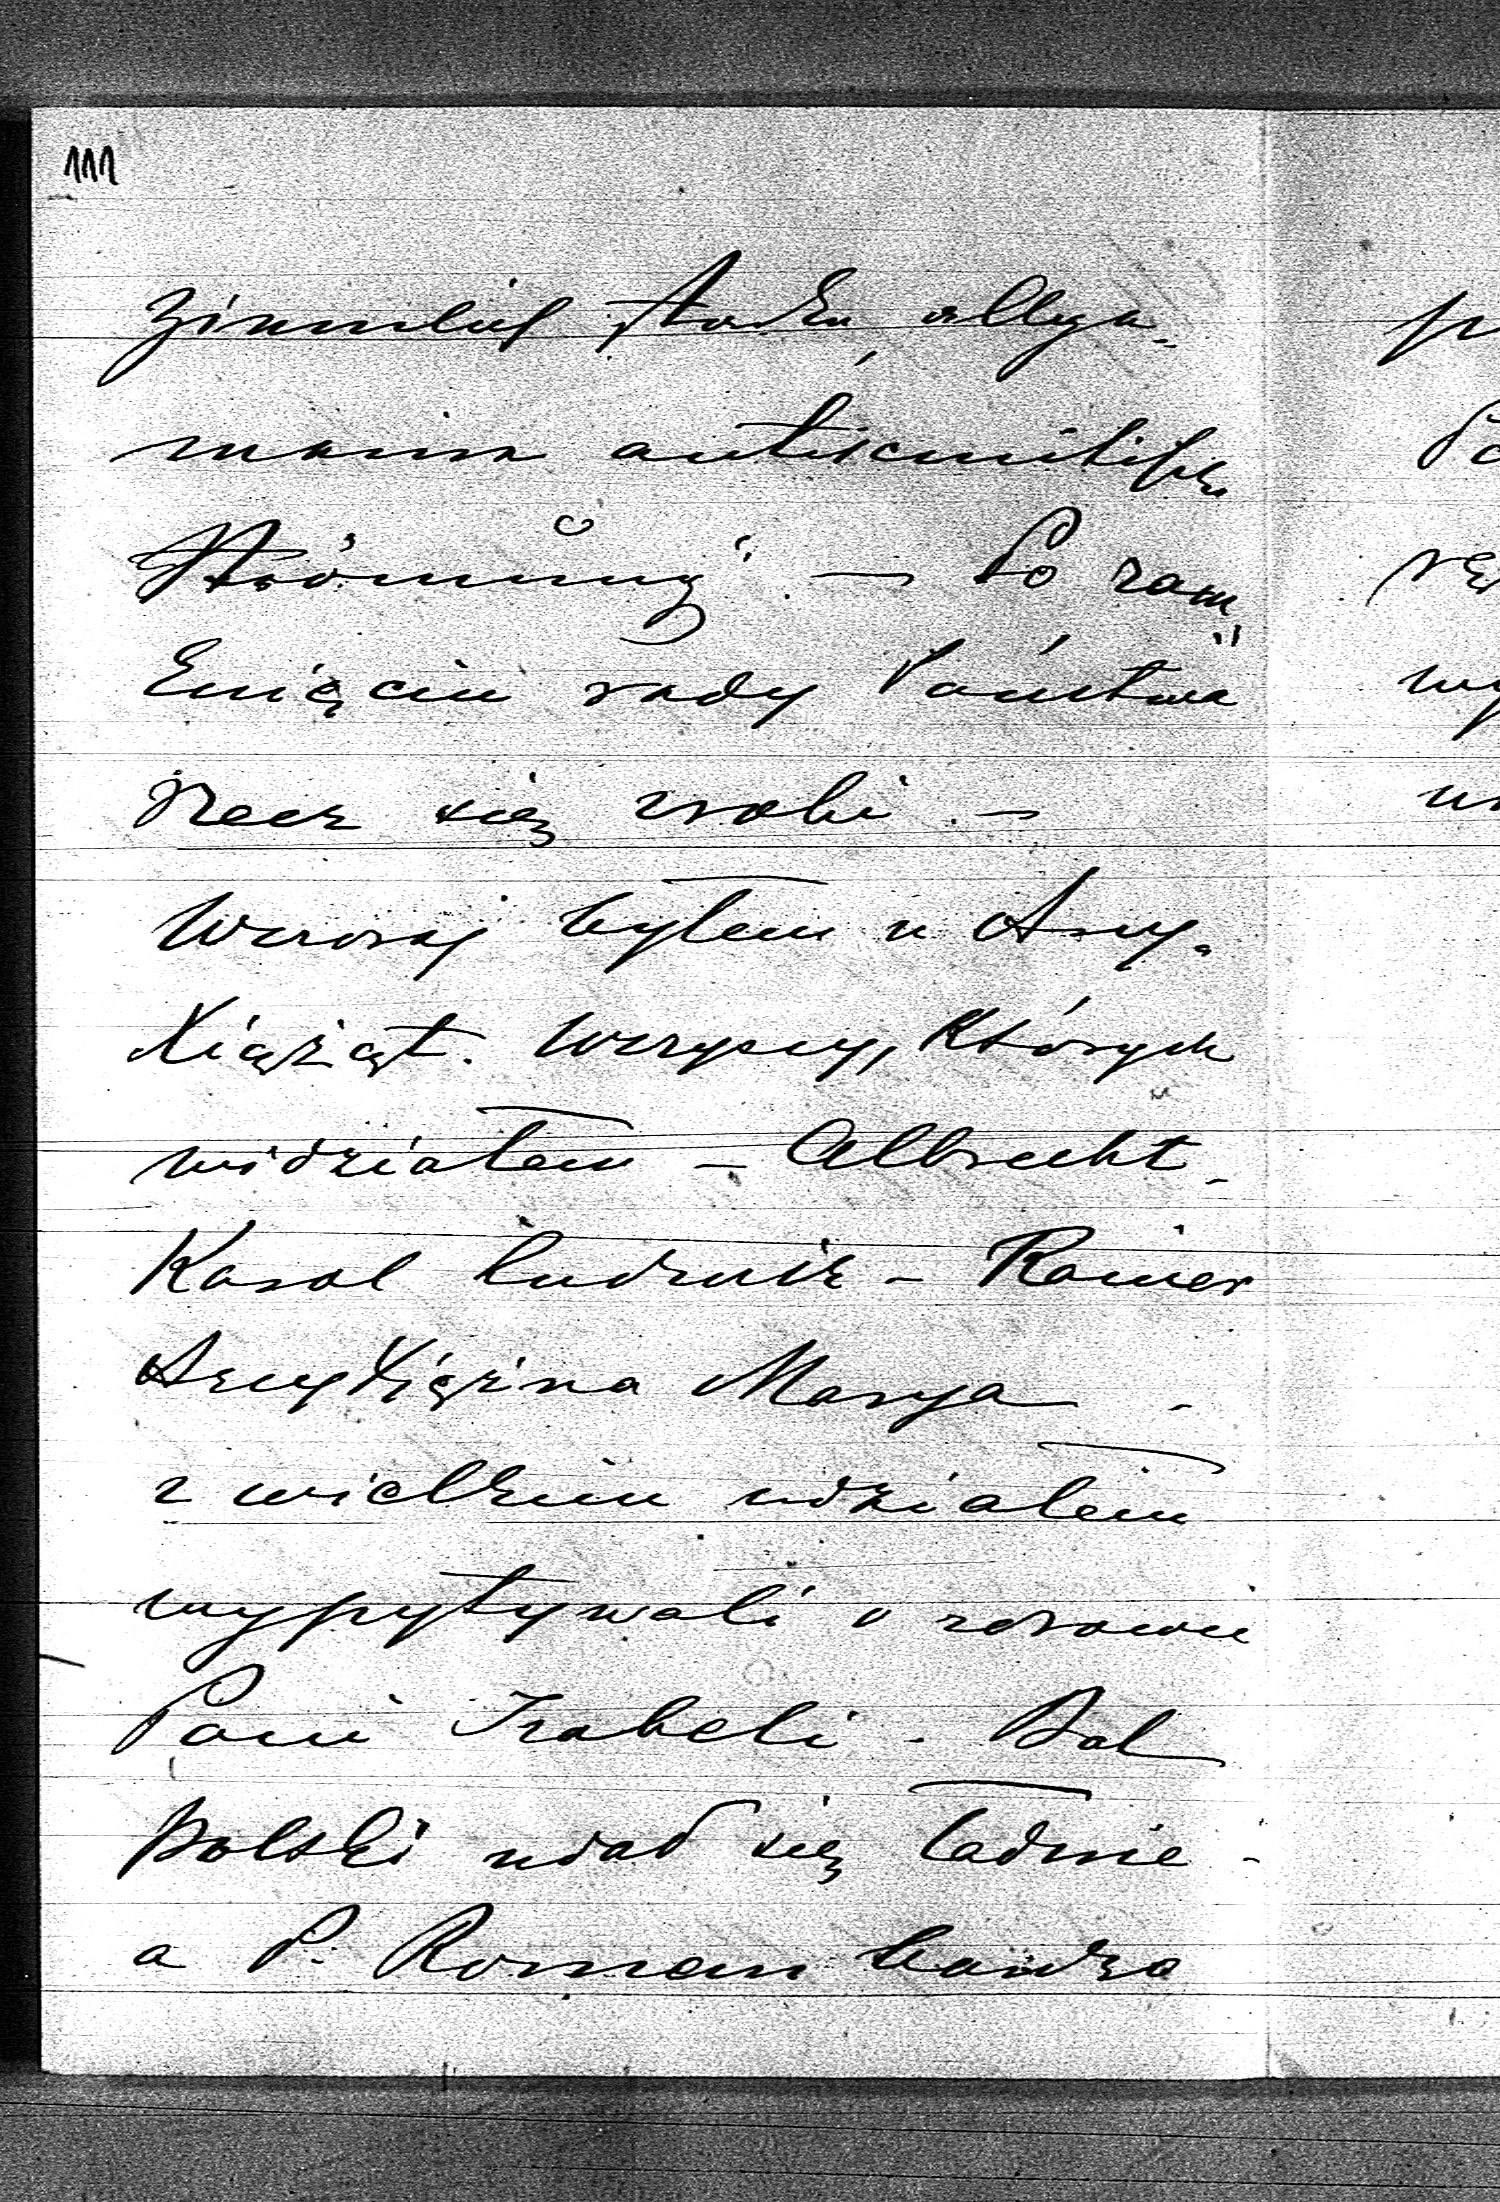 111
ziemlich starke, allge-
meine antisemitische
Strömung" — Po zam
knięciu rady Państwa
rzecz się zrobi. —
Wczoraj byłem u Arcy-
Xiążąt. Wszyscy, których
widziałem — Albrecht -
Karol Ludwik - Rainer
ArcyXiężna Marya -
z wielkim udziałem
wypytywali o zdrowie
Pani Izabeli. Bal
polski udał się ładnie -
a P. Roman bardzo